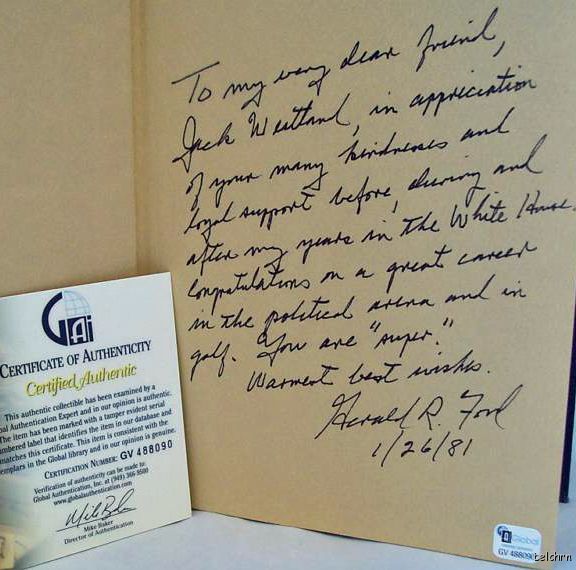 To my very dear friend,
Jack Westland, in appreciation
of your many kindnesses and
loyal support before, during and
after my years in the White House.
Congratulations on a great career
in the political arena and in
golf. You are "super."
Warmest best wishes.
Gerald R. Ford
1/26/81
GAi
CERTIFICATE OF AUTHENTICITY
Certified Authentic
This authentic collectible has been examined by a
al Authentication Expert and in our opinion is authentic.
The item has been marked with a tamper evident serial
numbered label that identifies the item in our database and
matches this certificate. This item is consistent with the
emplars in the Global library and in our opinion is genuine.
CERTIFICATION NUMBER: GV 488090
Verification of authenticity can be made to:
Global Authentication, Inc. at (949) 366-9500
www.globalauthentication.com
Mike Baker
Director of Authentication
Global
GV 488090
telchrn